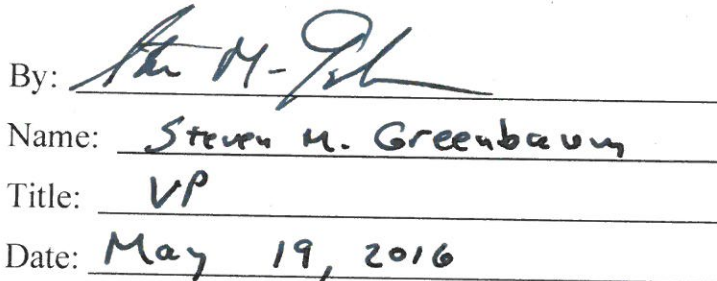 By: 
Name: Steven M. Greenbaum
Title: VP
Date: May 19, 2016